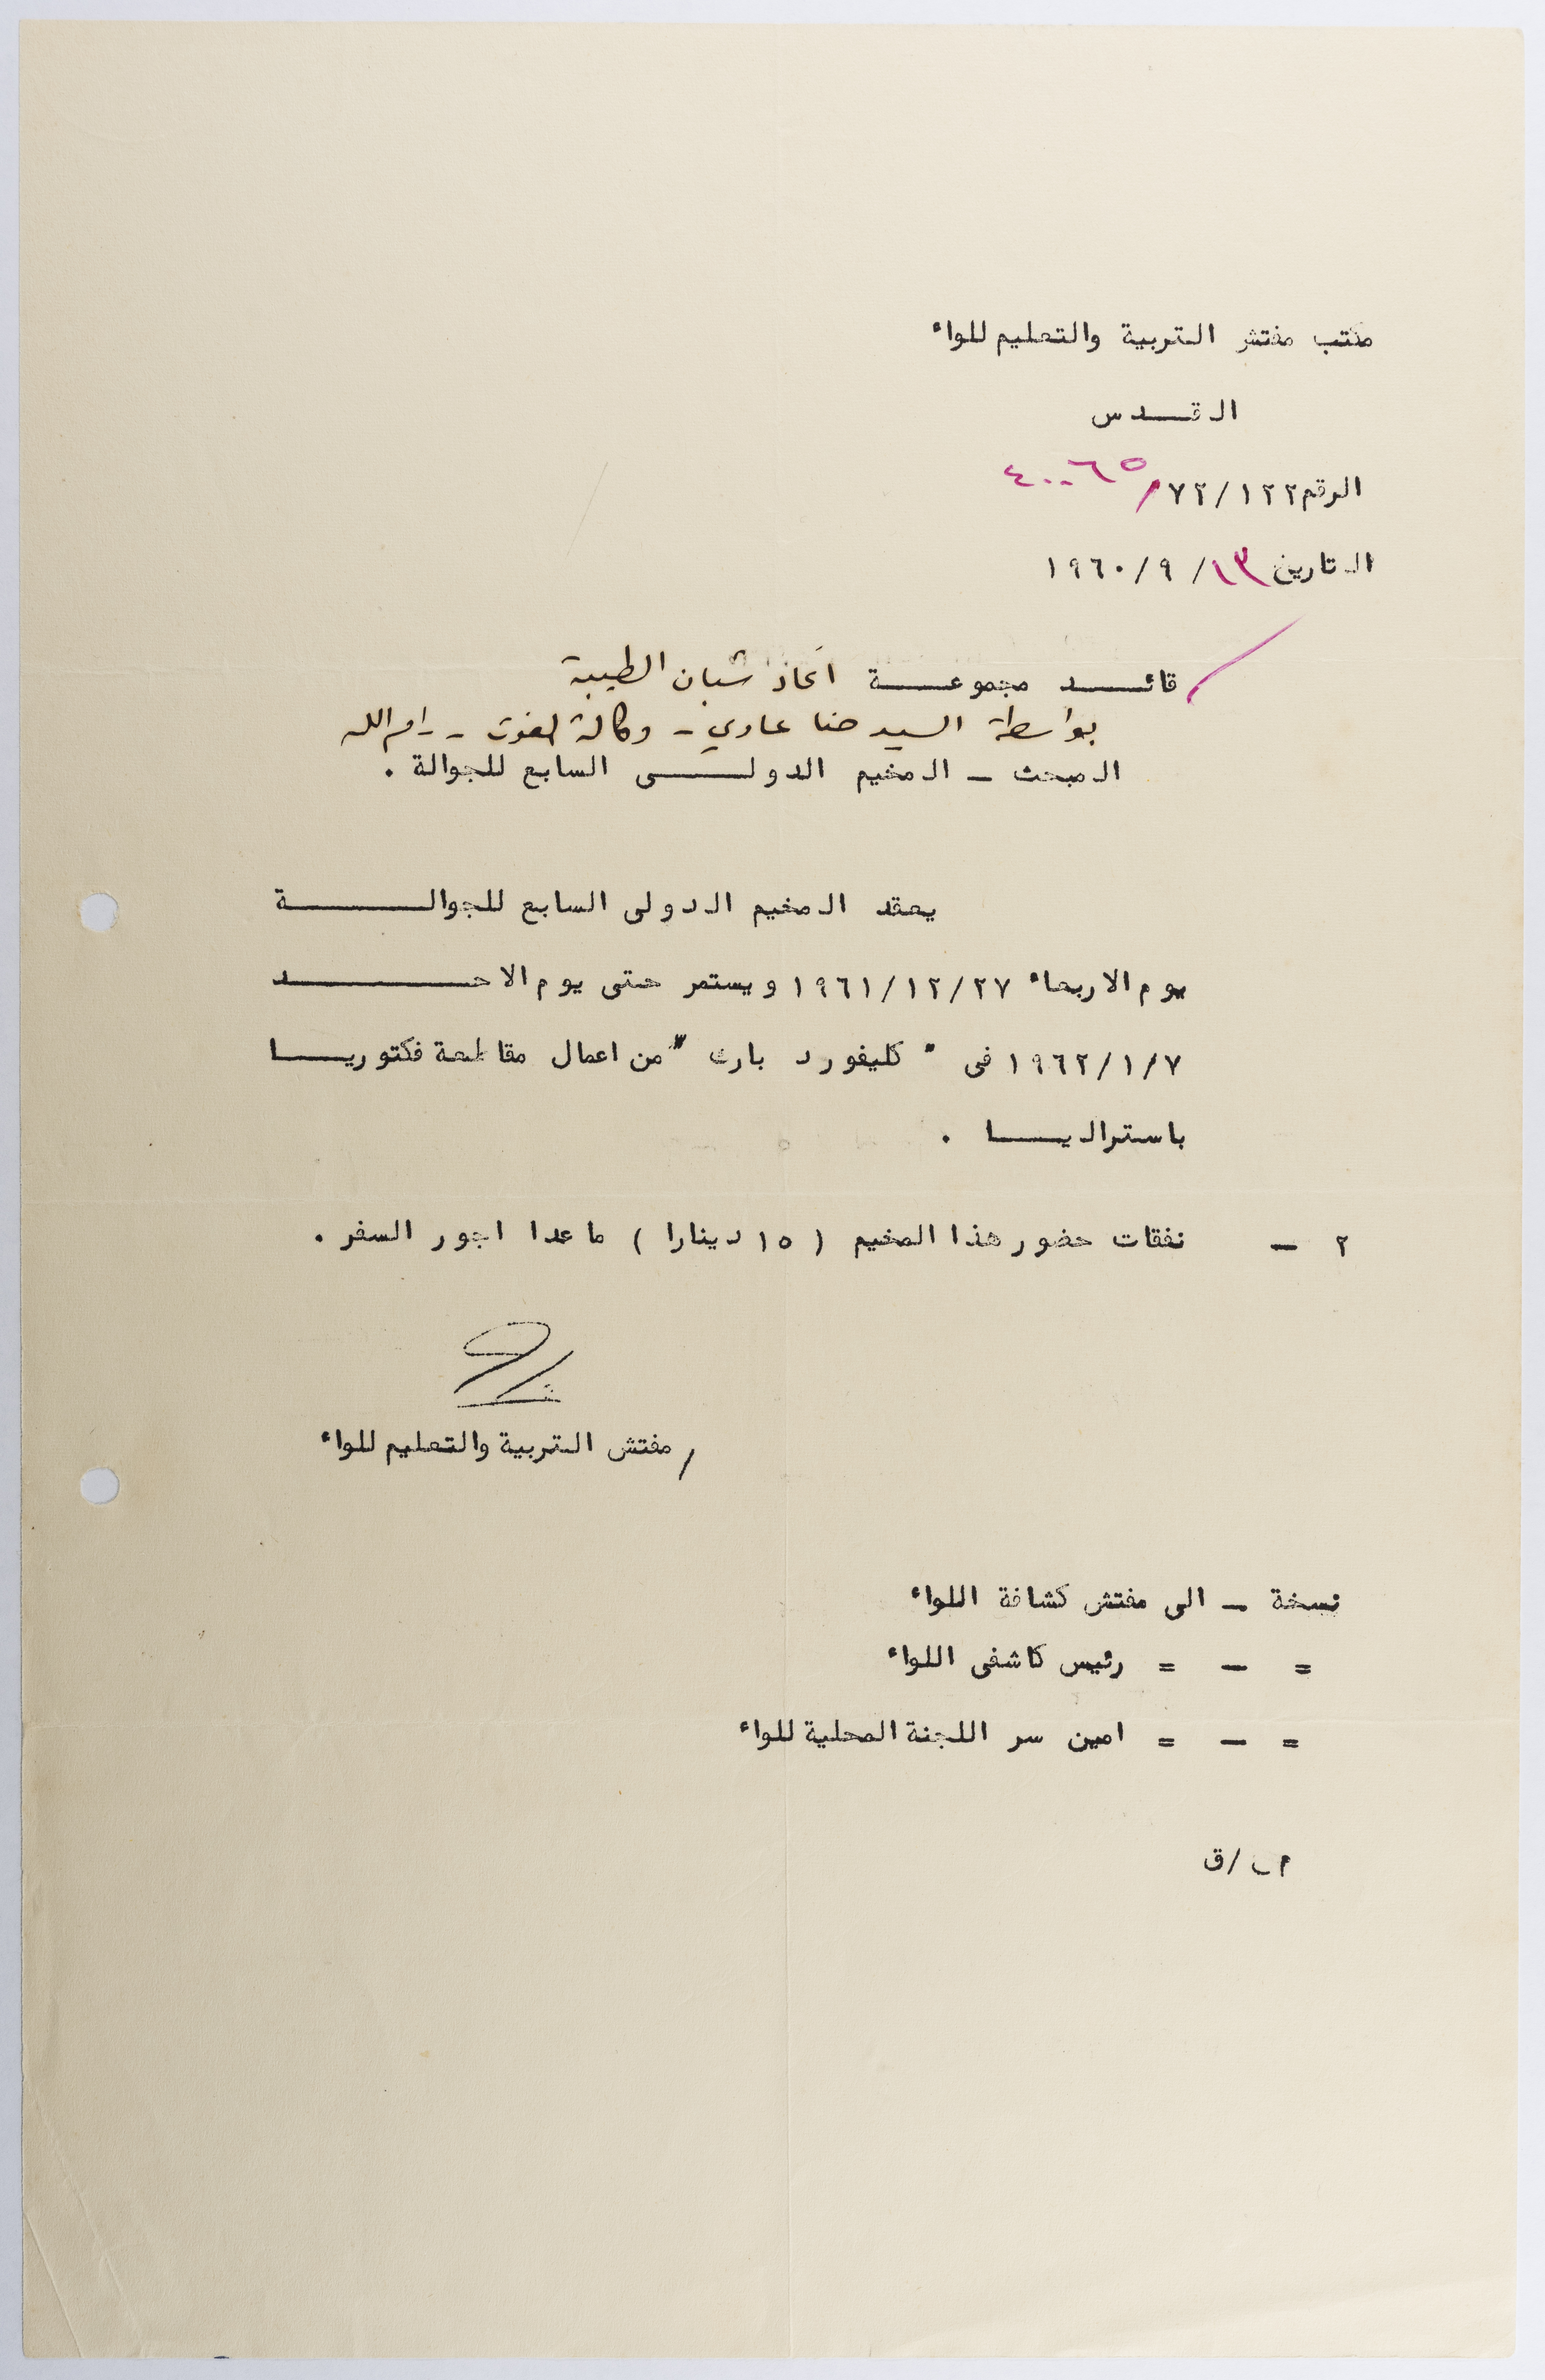 مكتب مفتش التربية والتعليم للواء
القدس
الرقم ٧٢/١٢٢/ ٤٠٠٦٥
التاريخ ١٣/ ٩/ ١٩٦٠
قائد مجموعة اتحاد شبان الطيبة
بواسطة السيد حنا عادي - وكالة الغوث - رام الله
المبحث - المخيم الدولى السابع للجوالة .
يعقد المخيم الدولى السابع للجوالة
يوم الاربعاء ١٩٦١/١٢/٢٧ ويستمر حتى يوم الاحد
١٩٦٢/١/٧ فى " كليفورد بارك " من اعمال مقاطعة فكتوريا
باستراليا .
٢ - نفقات حضور هذا المخيم ( ١٥ دينارا ) ما عدا اجور السفر .
/ مفتش التربية والتعليم للواء
نسخة - الى مفتش كشافة اللواء
= - = رئيس كاشفى اللواء
= - = امين سر اللجنة المحلية للواء